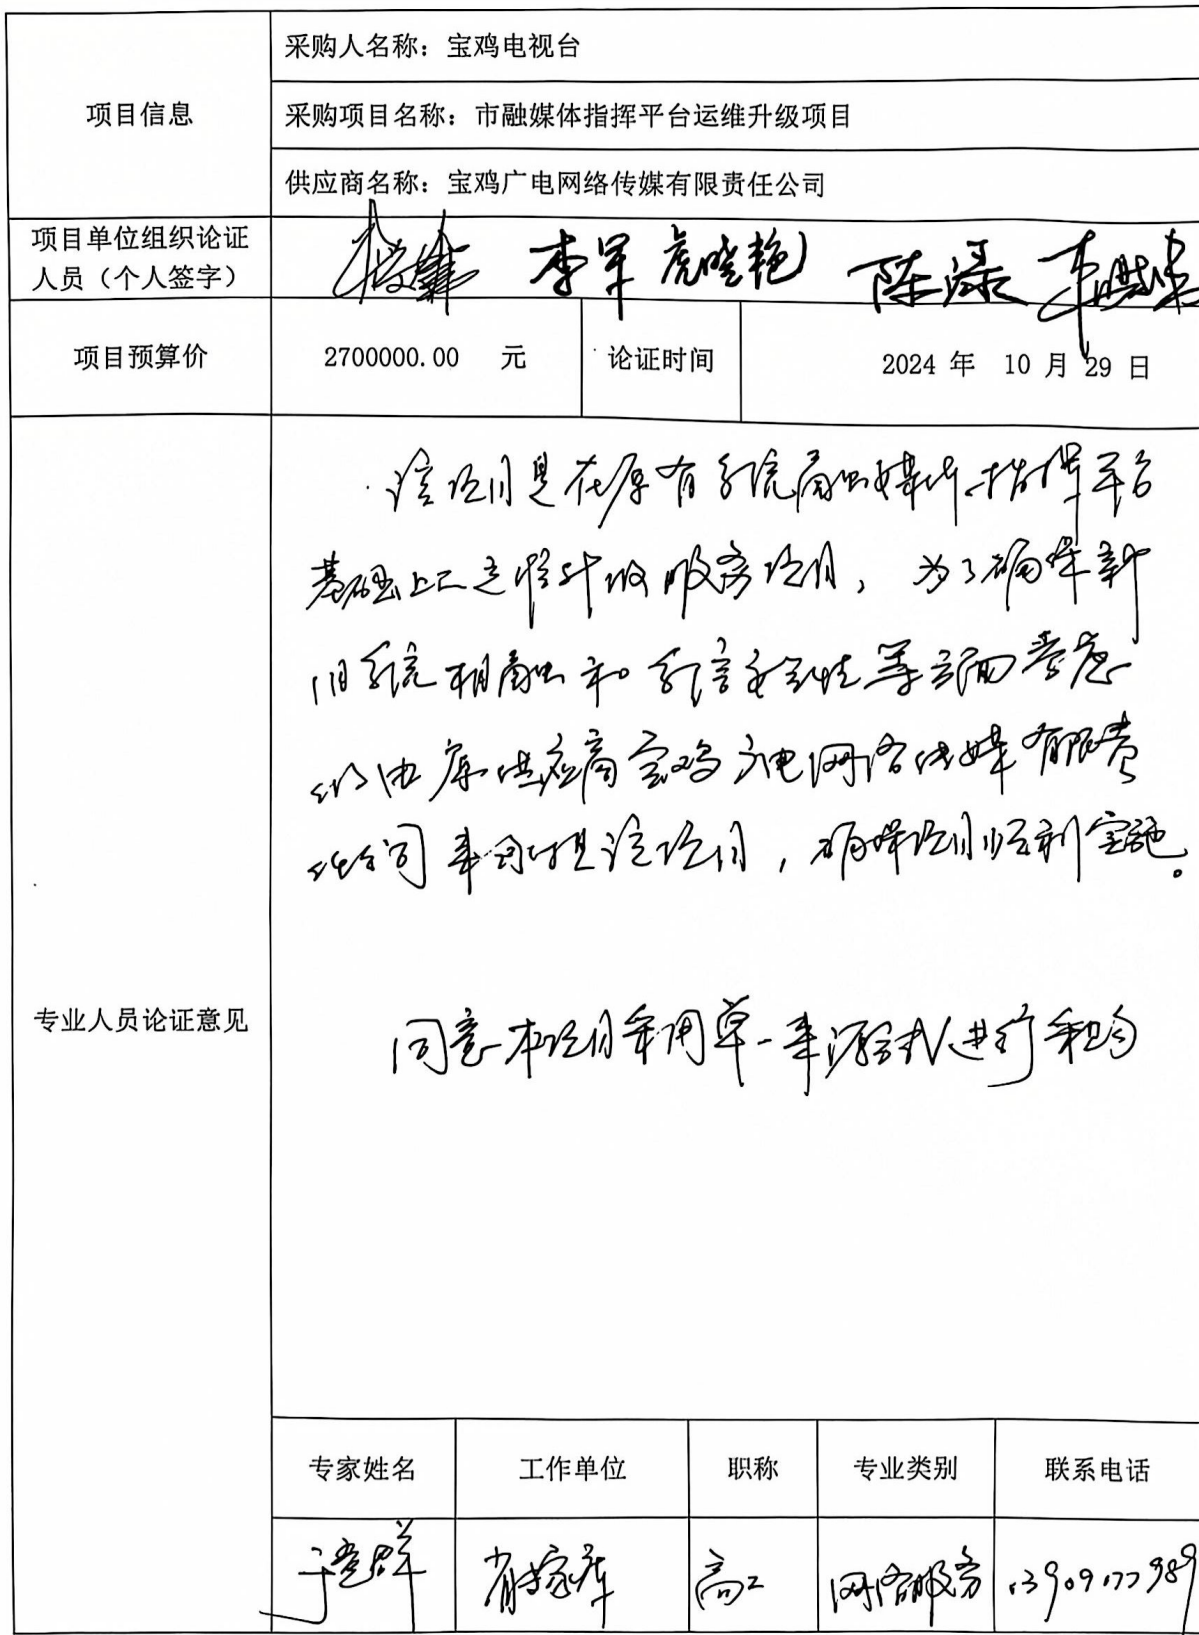 项目信息
采购人名称：宝鸡电视台
采购项目名称：市融媒体指挥平台运维升级项目
供应商名称：宝鸡广电网络传媒有限责任公司
项目单位组织论证
人员（个人签字）
李军 虎晓艳 陈渌
项目预算价
2700000.00 元
论证时间
2024 年 10 月 29 日
专业人员论证意见
该项目是在原有系统融媒体指挥平台
基础上运维升级服务项目，为了确保新
旧系统相融和系统安全性等方面考虑
由原供应商宝鸡广电网络传媒有限责
任公司来该项目，确保项目顺利实施。
同意本项目采用单一来源方式进行采购
专家姓名
工作单位
职称
专业类别
联系电话
省专家库
高工
网络服务